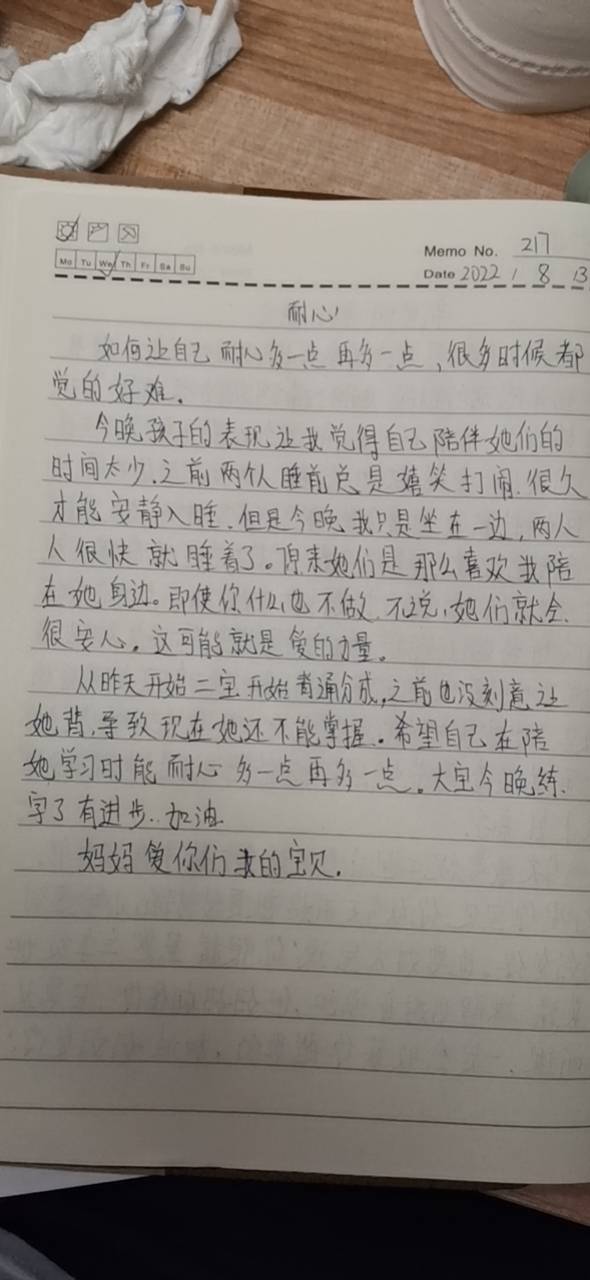 Mo Tu We Th Fr Sa Su
Memo No. 217
Date 2022 / 8 / 3
耐心
如何让自己耐心多一点再多一点,很多时候都
觉的好难。
今晚孩子的表现让我觉得自己陪伴她们的
时间太少,之前两个人睡前总是嬉笑打闹,很久
才能安静入睡,但是今晚我只是坐在一边,两人
人很快就睡着了。原来她们是那么喜欢我陪
在她身边。即使你什么也不做,不说,她们就会
很安心。这可能就是爱的力量。
从昨天开始二宝开始背诵分成,之前也没刻意让
她背,导致现在她还不能掌握。希望自己在陪
她学习时能耐心多一点再多一点。大宝今晚练
字了有进步..加油
妈妈爱你们我的宝贝。